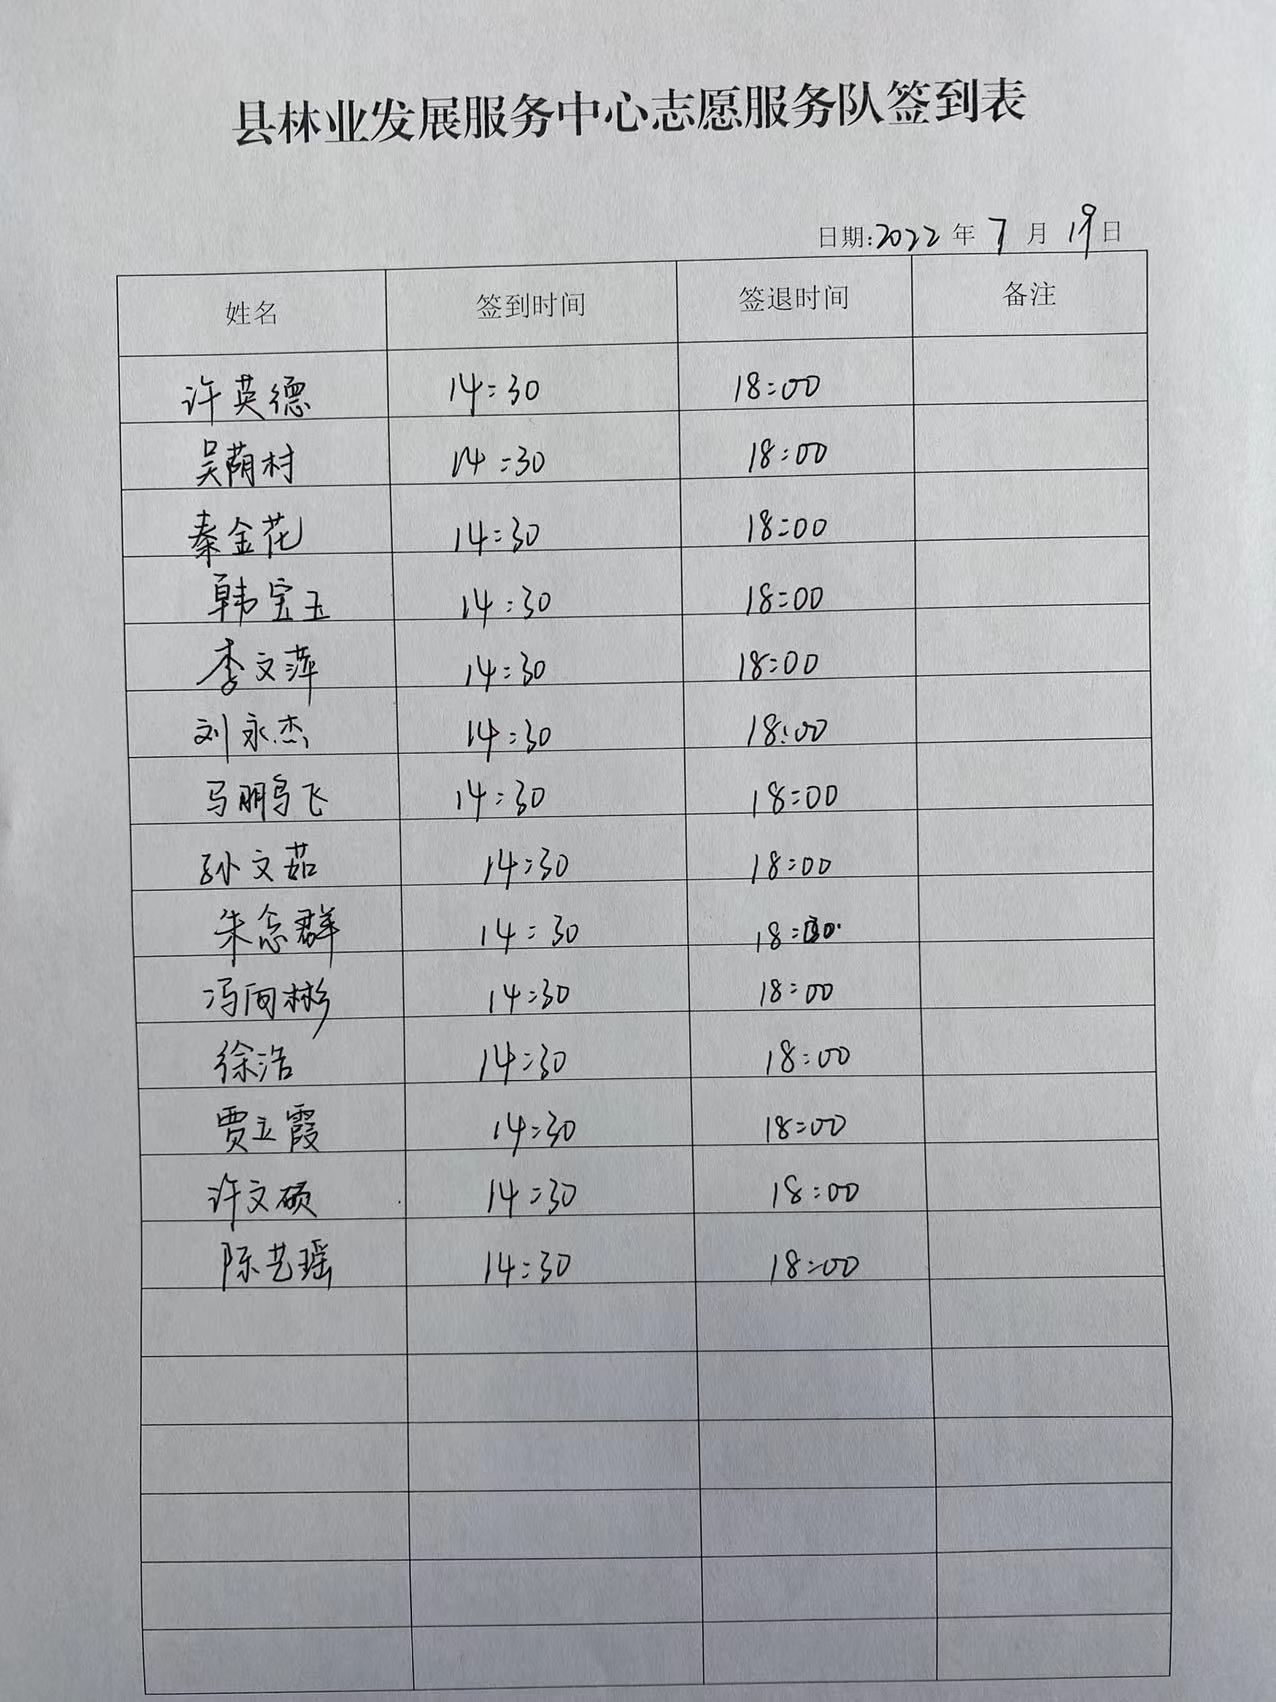 县林业发展服务中心志愿服务队签到表
日期:2022年7月19日
姓名 签到时间 签退时间 备注
许英德 14:30 18:00
吴荫村 14:30 18:00
秦金花 14:30 18:00
韩宝玉 14:30 18:00
李文萍 14:30 18:00
刘永杰 14:30 18:00
马鹏飞 14:30 18:00
孙文茹 14:30 18:00
朱念群 14:30
冯向彬 14:30 18:00
徐浩 14:30 18:00
贾立霞 14:30 18:00
许文硕 14:30 18:00
陈艺瑶 14:30 18:00